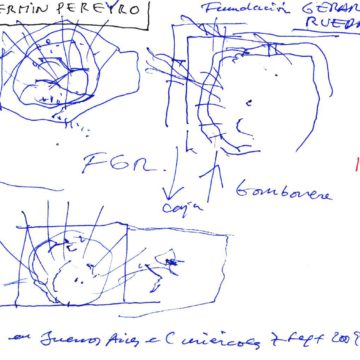 ERMIN PEREYRO
Fundación GERAR
RUEDA
FGR.
caja
bombonera
en Buenos Aires el miércoles 7 Sept 2009